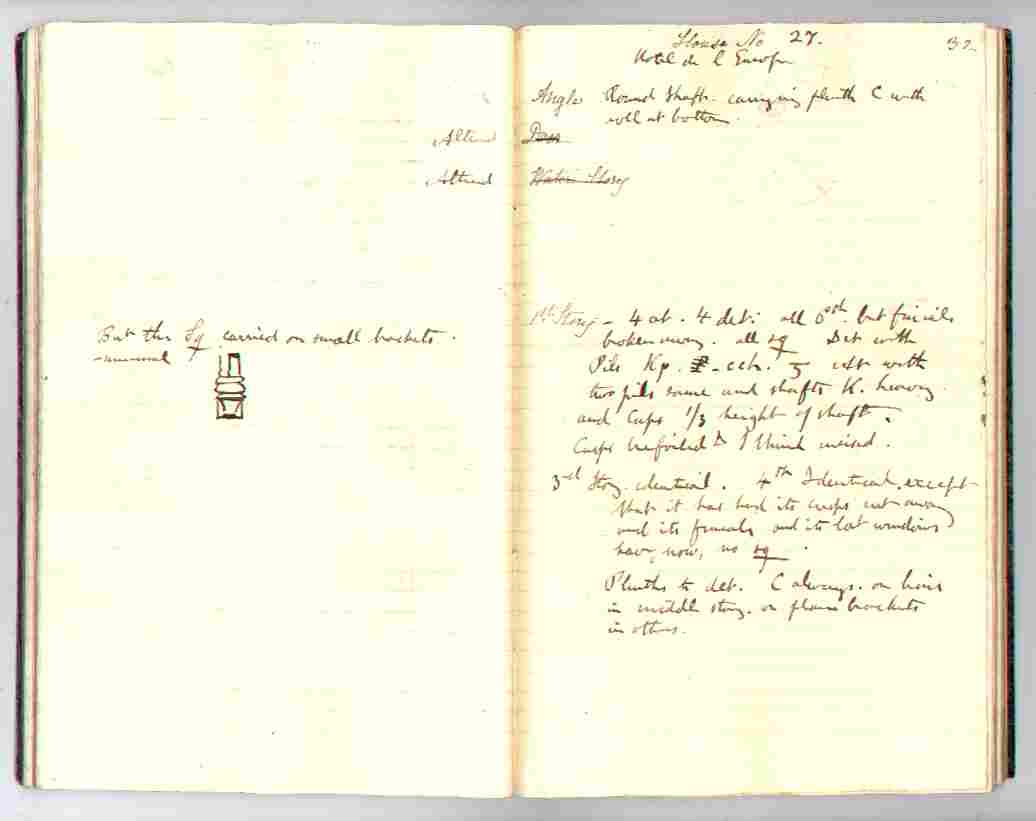 But the Sq carried on small brackets.
-unusual
Altered
Altered
House No 27.
32.
Hotel de l Europe
Angle Round shafts. carrying plinth C with
roll at bottom.
Door
Water Story
1st Story - 4 at. 4 det: all 6th but finials
broken away. all sq Det with
Pils Kp. - cch. with
two pils same and shafts K. heavy
and Caps 1/3 height of shaft.
Cusps trefoiled I think incised.
3rd Story identical. 4th Identical. except
that it has had its cusps cut away
and its finials, and its lat windows
have, now, no sq.
Plinths to det. C always. on lions
in middle story. on plain brackets
in others.